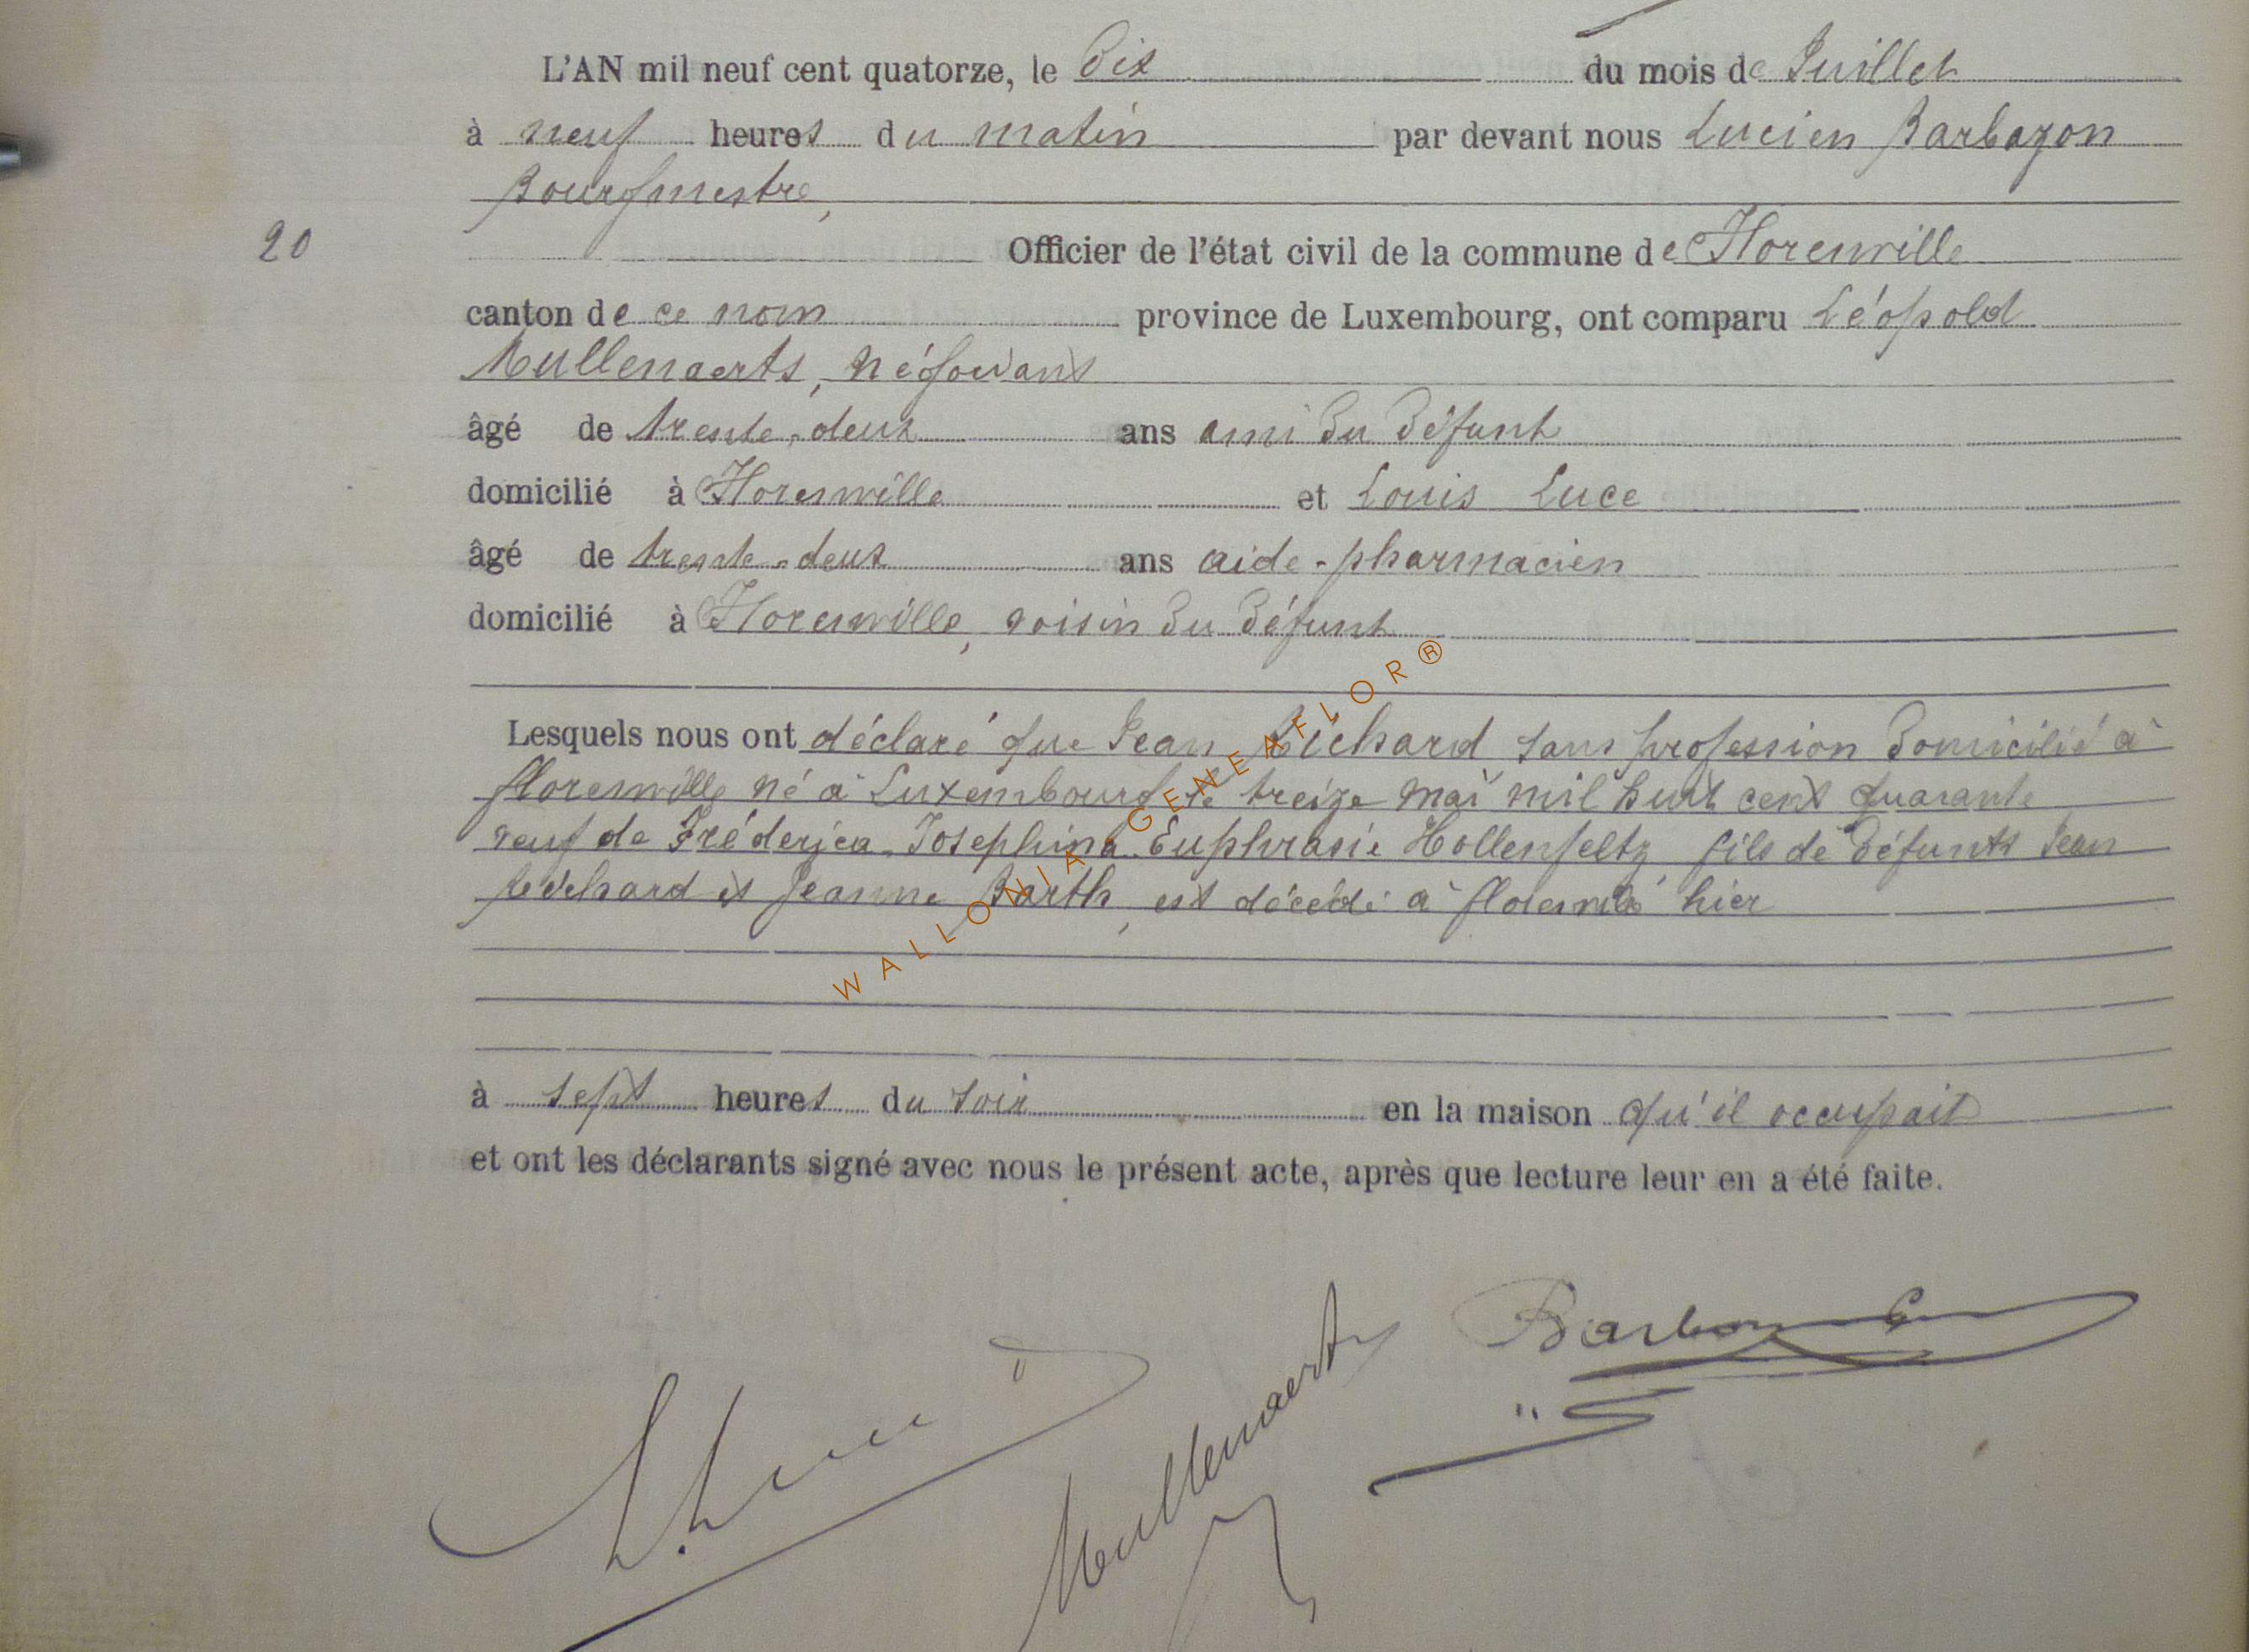 L'AN mil neuf cent quatorze, le Dix du mois de Juillet
à neuf heures du matin par devant nous Lucien Barbazon
Bourgmestre,
20
Officier de l'état civil de la commune de Florenville
canton de ce nom province de Luxembourg, ont comparu Léopold
Mullenaerts, négociant
âgé de trente-deux ans ami du défunt
domicilié à Florenville et Louis Luce
âgé de trente-deux ans aide-pharmacien
domicilié à Florenville, voisin du défunt
Lesquels nous ont déclaré que Jean Réchard sans profession domicilié à
florenville né à Luxembourg le treize mai mil huit cent quarante
veuf de Fréderica-Josephina-Euphrasie Hollenfeltz fils de défunts Jean
Réchard et Jeanne Barth, est décédé à florenville hier
à sept heures du soir en la maison qu'il occupait
et ont les déclarants signé avec nous le présent acte, après que lecture leur en a été faite.
Barbazon
L. Luce
Mullenaerts
WALLONIA GENEAFLOR®